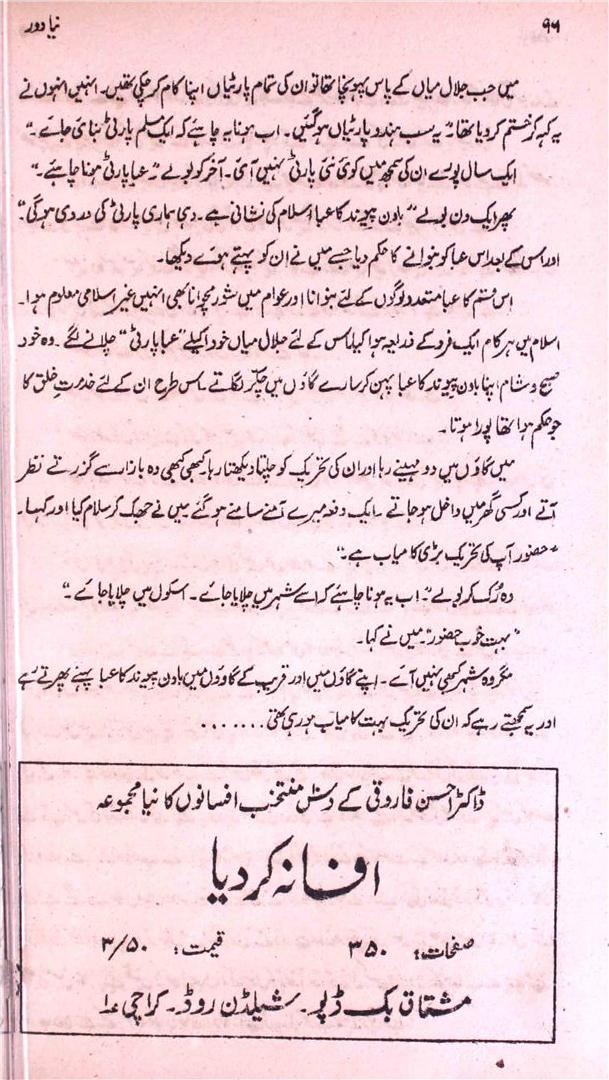 ۹۶
نیا دور
میں جب جلال میاں کے پاس پہونچا تھا تو ان کی تمام پارٹیاں اپنا کام کر چکی تھیں۔ انہیں انہوں نے
یہ کہہ کر ختم کر دیا تھا۔ "یہ سب ہندو پارٹیاں ہو گئیں۔ اب ہونا یہ چاہئے کہ ایک مسلم پارٹی بنائی جائے۔"
ایک سال پورے ان کی سمجھ میں کوئی نئی پارٹی نہیں آئی۔ آخر کو بولے "عبا پارٹی ہونا چاہئے۔"
پھر ایک دن بولے "باون پیوند کا عبا اسلام کی نشانی ہے۔ وہی ہماری پارٹی کی وردی ہو گی۔"
اور اس کے بعد اس عبا کو بنوانے کا حکم دیا جسے میں نے ان کو پہنے ہوئے دیکھا۔
اس قسم کا عبا متعدد لوگوں کے لئے بنوانا اور عوام میں شور مچوانا بھی انہیں غیر اسلامی معلوم ہوا۔
اسلام میں ہر کام ایک فرد کے ذریعہ ہوا کیا۔ اس کے لئے جلال میاں خود اکیلے "عبا پارٹی" چلانے لگے۔ وہ خود
صبح و شام اپنا باون پیوند کا عبا پہن کر سارے گاؤں میں چکر لگاتے۔ اس طرح ان کے لئے خدمتِ خلق کا
جو حکم ہوا تھا پورا ہوتا۔
میں گاؤں میں دو مہینے رہا اور ان کی تحریک کو چلتا دیکھتا رہا۔ کبھی کبھی وہ بازار سے گزرتے نظر
آتے اور کسی گھر میں داخل ہو جاتے۔ ایک دفعہ میرے آمنے سامنے ہو گئے میں نے جھک کر سلام کیا اور کہا۔
"حضور آپ کی تحریک بڑی کامیاب ہے۔"
وہ رُک کر بولے "اب یہ ہونا چاہئے کہ اسے شہر میں چلایا جائے۔ اسکول میں چلایا جائے۔"
"بہت خوب حضور" میں نے کہا۔
مگر وہ شہر کبھی نہیں آئے۔ اپنے گاؤں میں اور قریب کے گاوؤں میں باون پیوند کا عبا پہنے پھرتے رہے
اور یہ سمجھتے رہے کہ ان کی تحریک بہت کامیاب ہو رہی تھی.......
ڈاکٹر احسن فاروقی کے دس منتخب افسانوں کا نیا مجموعہ
افسانہ کر دیا
صفحات: ۳۵۰ قیمت: ۳/۵۰
مشتاق بک ڈپو۔ شیلڈن روڈ۔ کراچی ۱